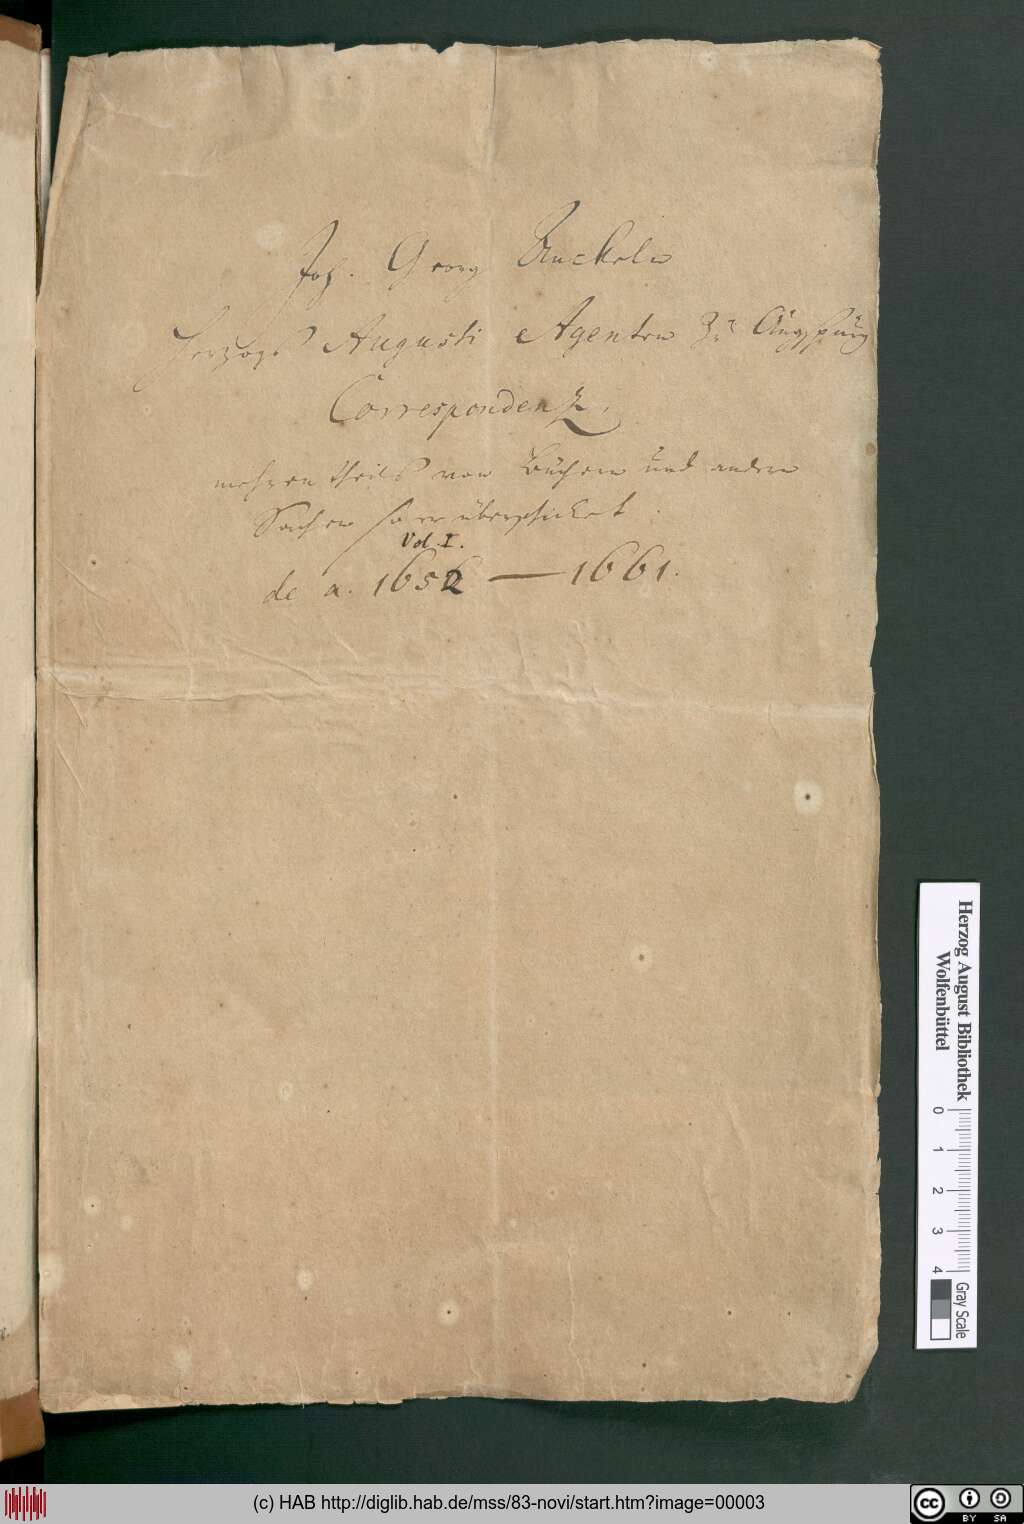 Joh. Georg Anckeln
Herzogs Augusti Agenten Zu Augspurg
Correspondentz,
mehren theils von Büchern und andern
Sachen so er überschicket.
Vol. I.
de a. 1652 — 1661.
Herzog August Bibliothek
Wolfenbüttel
0 1 2 3 4
Gray Scale
(c) HAB http://diglib.hab.de/mss/83-novi/start.htm?image=00003
cc BY SA